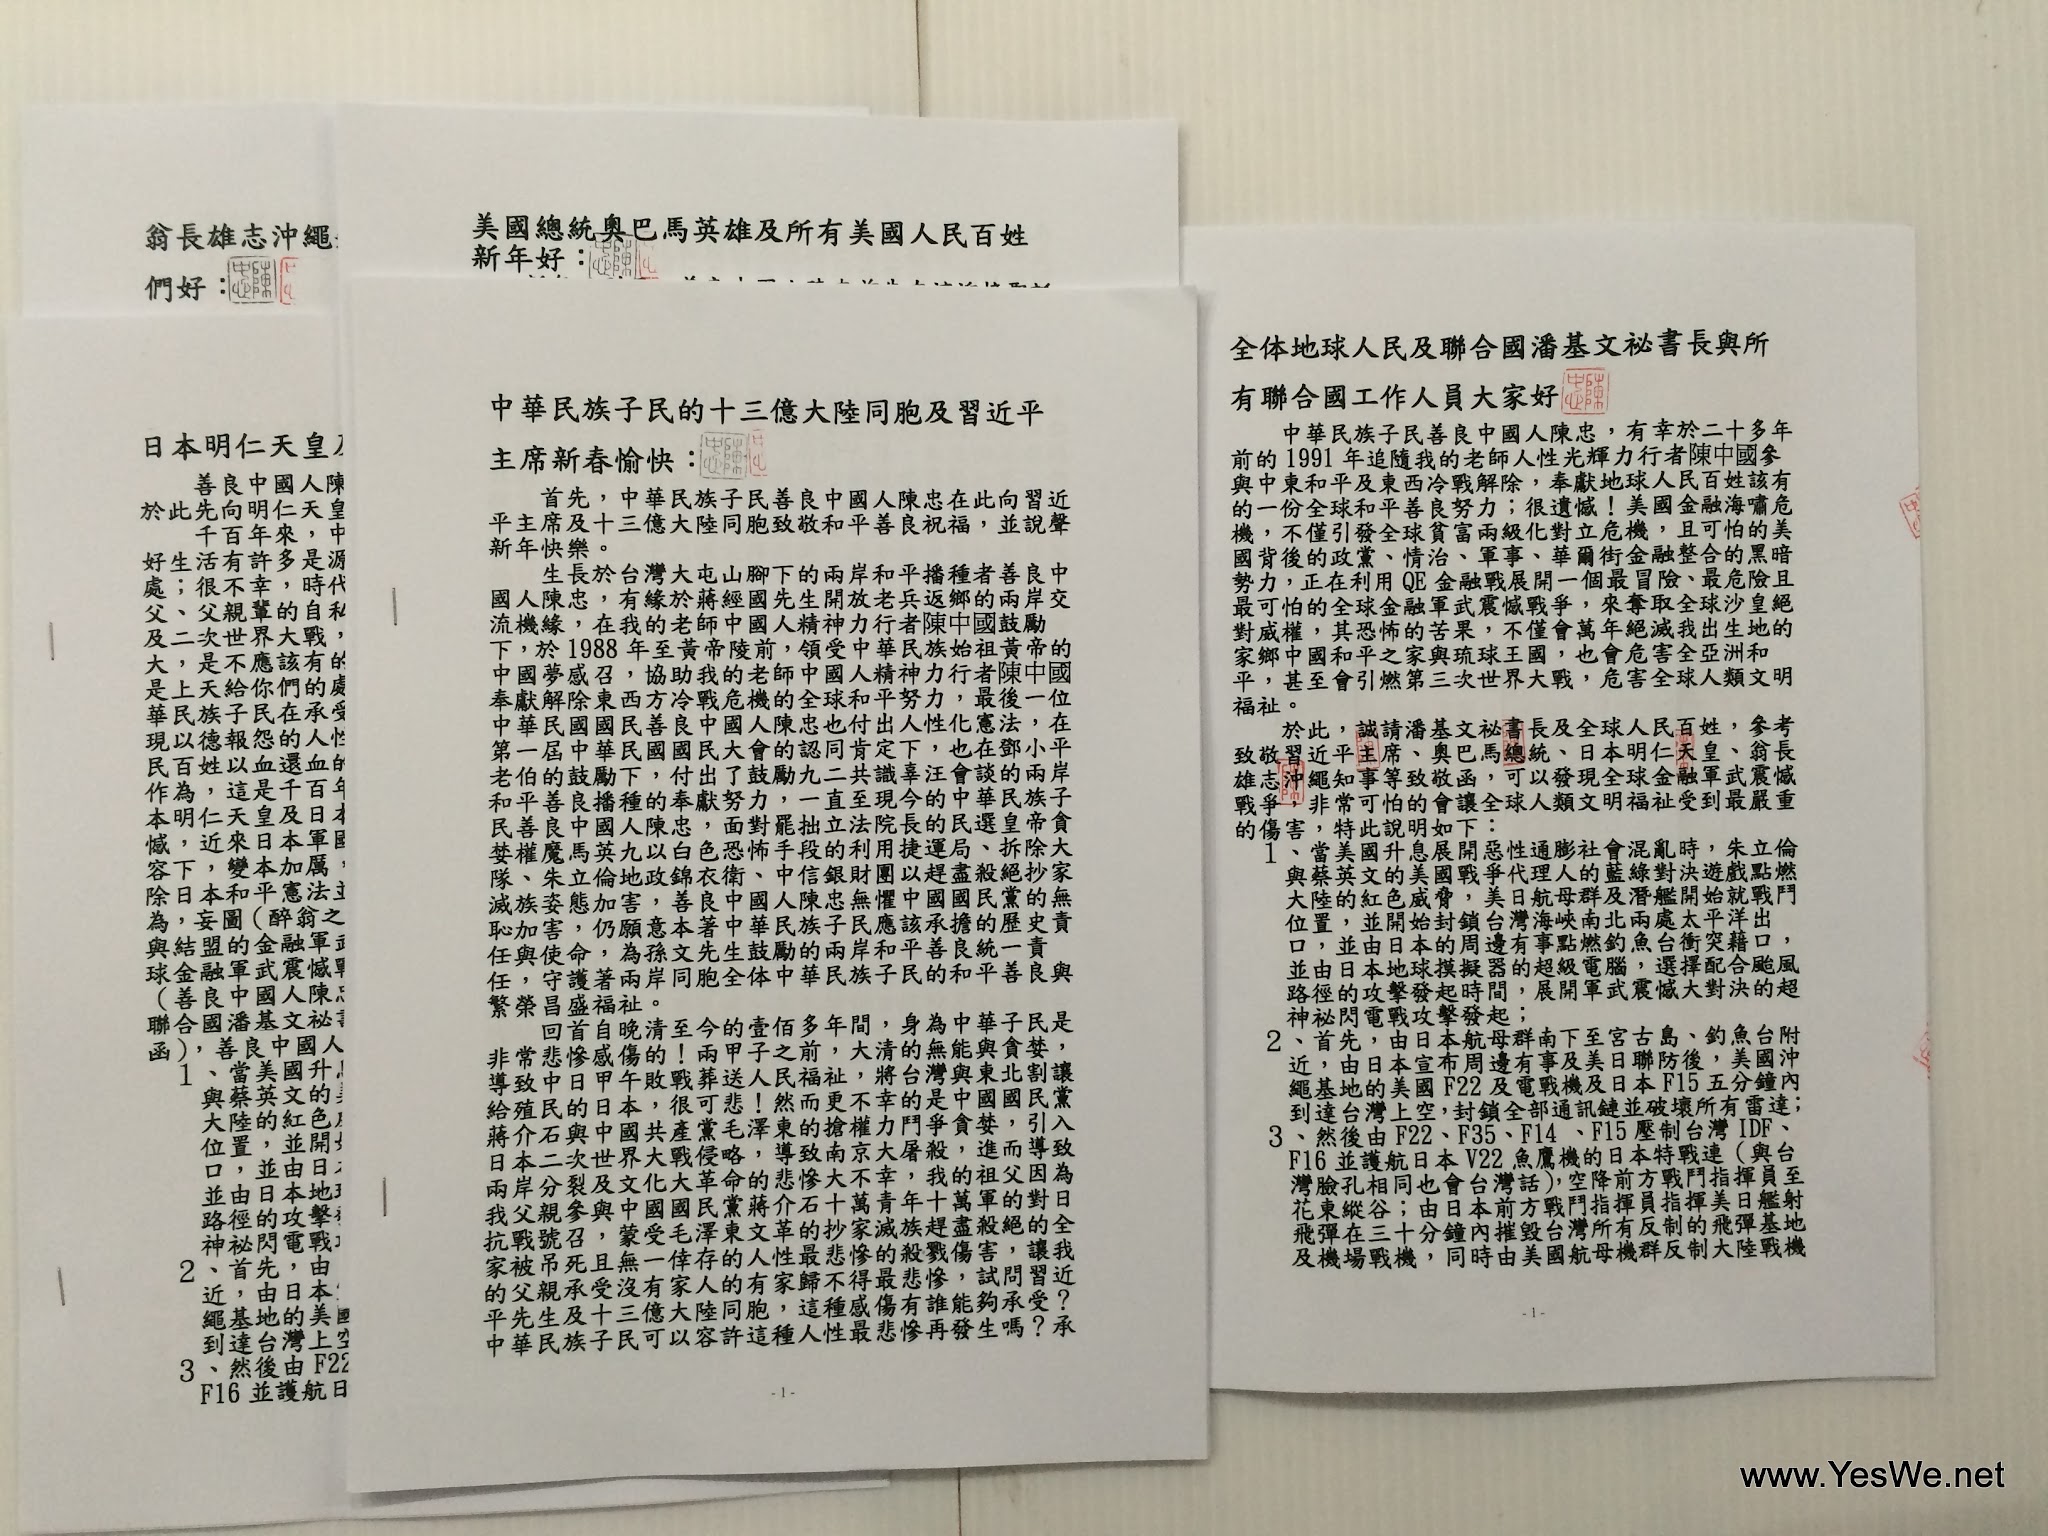 翁長雄志沖繩
們好：
美國總統奧巴馬英雄及所有美國人民百姓
新年好：
日本明仁天皇及
善良中國人陳
於此先向明仁天皇
千百年來，中
好生活有許多是源
處；很不幸，時代
父、父親輩的自私
及二次世界大戰，
大，是不應該有的
是上天給你們的處
華民族子民在承受
現以德報怨的人性
民百姓以血還血的
作為，這是千百年
本明仁天皇及日本
憾，近來日本軍國
容下，變本加厲，
除日本和平憲法並
為，妄圖（醉翁之
與結盟的金融軍武
球金融軍武震憾戰
（善良中國人陳忠
聯合國潘基文祕書
函），善良中國人
1、當美國升息
與蔡英文的
大陸的紅色
位置，並開始
口，並由日本
並由日本地球
路徑的攻擊
神祕閃電戰
2、首先，由
近，由日本
繩基地的美國
到達台灣上空
3、然後由 F22
F16 並護航日
中華民族子民的十三億大陸同胞及習近平
主席新春愉快：
首先，中華民族子民善良中國人陳忠在此向習近
平主席及十三億大陸同胞致敬和平善良祝福，並說聲
新年快樂。
生長於台灣大屯山腳下的兩岸和平播種者善良中
國人陳忠，有緣於蔣經國先生開放老兵返鄉的兩岸交
流機緣，在我的老師中國人精神力行者陳中國鼓勵
下，於 1988 年至黃帝陵前，領受中華民族始祖黃帝的
中國夢感召，協助我的老師中國人精神力行者陳中國
奉獻解除東西方冷戰危機的全球和平努力，最後一位
中華民國國民善良中國人陳忠也付出人性化憲法，在
第一屆中華民國國民大會的認同肯定下，也在鄧小平
老伯的鼓勵下，付出了鼓勵九二共識辜汪會談的兩岸
和平善良播種的奉獻努力，一直至現今的中華民族子
民善良中國人陳忠，面對罷一拙立法院長的民選皇帝貪
婪權魔馬英九以白色恐怖手段的利用捷運局、拆除大
隊、朱立倫地政錦衣衛、中信銀財團以趕盡殺絕抄家
滅族姿態加害，善良中國人陳忠無懼中國國民黨的無
恥加害，仍願意本著中華民族子民應該承擔的歷史責
任與使命，為孫文先生鼓勵的兩岸和平善良統一責
任，守護著兩岸同胞全体中華民族子民的和平善良與
繁榮昌盛福祉。
回首自晚清至今的壹佰多年間，身為中華子民是
非常悲慘感傷的！兩甲子之前，大清的無能與貪婪，
導致中日甲午敗戰葬送人民福祉，將台灣與東北割讓
給殖民的日本，很可悲！然而更不幸的是中國國民黨
蔣介石與中國共產黨毛澤東的搶權力鬥爭貪婪，引入
日本二次世界大戰侵略，導致南京大屠殺，進而導致
兩岸分裂及文化大革命的悲慘大不幸，我的祖父因為
我父親參與中國國民黨蔣介石十萬青年十萬軍的對日
抗戰號召，蒙受毛澤東文革的抄家滅族趕盡殺絕的全
家被吊死且無一倖存的人性最悲慘的殺戮傷害，讓我
的父親承受沒有家人的有家歸不得最悲慘，試問習近
平先生及十三億大陸同胞，這種感傷有誰能夠承受？
中華民族子民可以容許這種人性最悲慘再發生嗎？承
-1-
全体地球人民及聯合國潘基文祕書長與所
有聯合國工作人員大家好
中華民族子民善良中國人陳忠，有幸於二十多年
前的 1991 年追隨我的老師人性光輝力行者陳中國參
與中東和平及東西冷戰解除，奉獻地球人民百姓該有
的一份全球和平善良努力；很遺憾！美國金融海嘯危
機，不僅引發全球貧富兩級化對立危機，且可怕的美
國背後的政黨、情治、軍事、華爾街金融整合的黑暗
勢力，正在利用 QE 金融戰展開一個最冒險、最危險且
最可怕的全球金融軍武震憾戰爭，來奪取全球沙皇絕
對威權，其恐怖的苦果，不僅會萬年絕滅我出生地的
家鄉中國和平之家與琉球王國，也會危害全亞洲和
平，甚至會引燃第三次世界大戰，危害全球人類文明
福祉。
於此，誠請潘基文祕書長及全球人民百姓，參考
致敬習近平主席、奧巴馬總統、日本明仁天皇、翁長
雄志沖繩知事等致敬函，可以發現全球金融軍武震憾
戰爭，非常可怕的會讓全球人類文明福祉受到最嚴重
的傷害，特此說明如下：
1、當美國升息展開惡性通膨社會混亂時，朱立倫
與蔡英文的美國戰爭代理人的藍綠對決遊戲點燃
大陸的紅色威脅，美日航母群及潛艦開始就戰鬥
位置，並開始封鎖台灣海峽南北兩處太平洋出
口，並由日本的周邊有事點燃釣魚台衝突藉口，
並由日本地球摸擬器的超級電腦，選擇配合颱風
路徑的攻擊發起時間，展開軍武震憾大對決的超
神祕閃電戰攻擊發起；
2、首先，由日本航母群南下至宮古島、釣魚台附
近，由日本宣布周邊有事及美日聯防後，美國沖
繩基地的美國 F22 及電戰機及日本 F15 五分鐘內
到達台灣上空，封鎖全部通訊鏈並破壞所有雷達；
3、然後由 F22、F35、F14 、F15 壓制台灣 IDF、
F16 並護航日本 V22 魚鷹機的日本特戰連（與台
灣臉孔相同也會台灣話），空降前方戰鬥指揮員至
花東縱谷；由日本前方戰鬥指揮員指揮美日艦射
飛彈在三十分鐘內摧毀台灣所有反制的飛彈基地
及機場戰機，同時由美國航母機群反制大陸戰機
-1-
www.YesWe.net